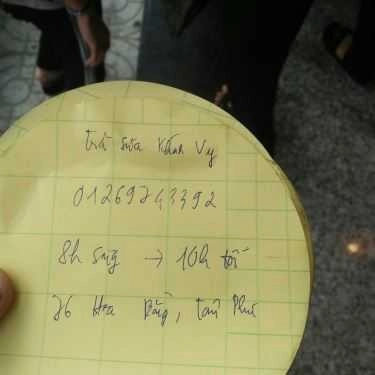 trà sữa Khánh Vy
01269743392
8h sáng → 10h tối
76 Hoa Bằng, Tân Phú